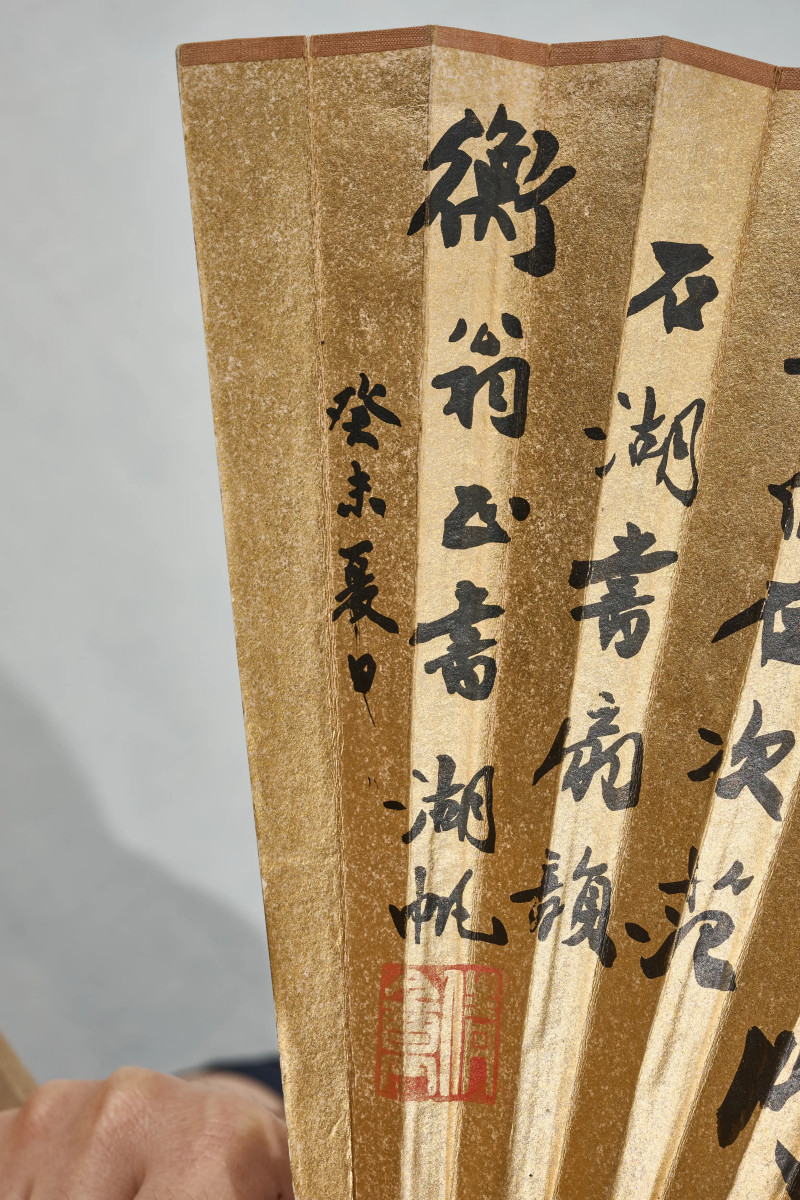 石次范
石湖書扇韻
衡翁正書 湖帆
癸未夏日
倩盦